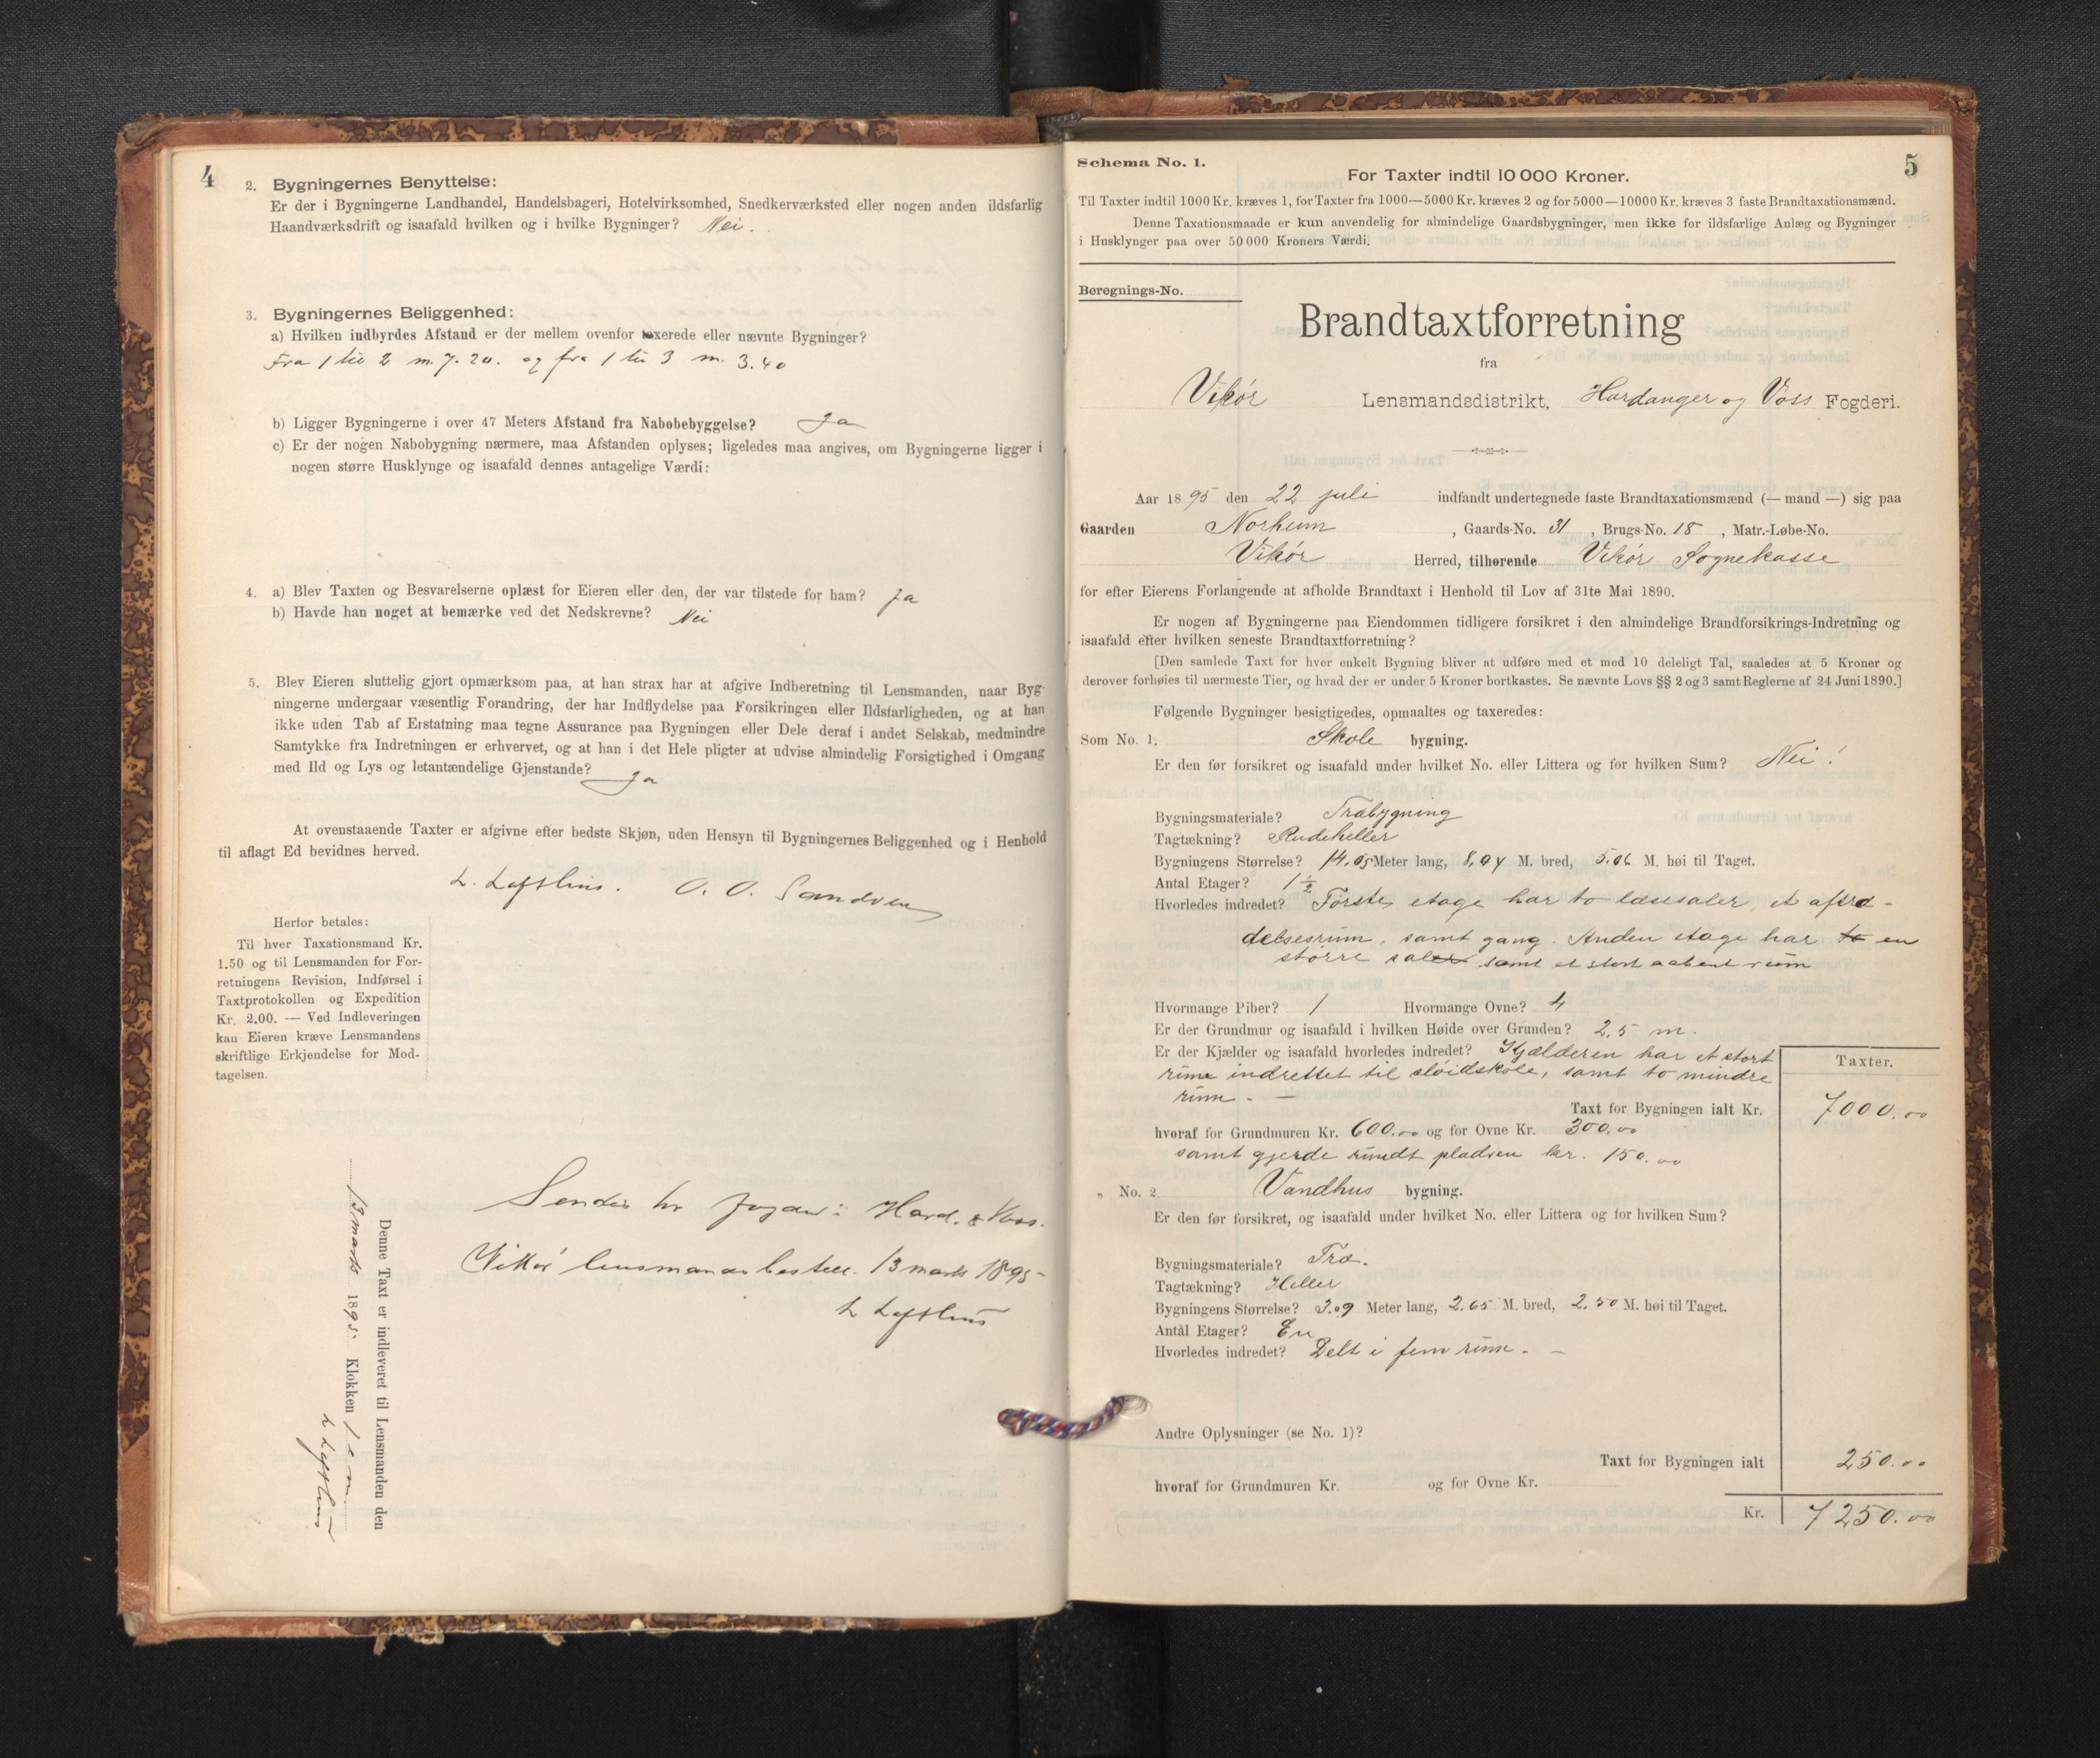 4
2. Bygningernes Benyttelse:
Er der i Bygningerne Landhandel, Handelsbageri, Hotelvirksomhed, Snedkerværksted eller nogen anden ildsfarlig
Haandværksdrift og isaafald hvilken og i hvilke Bygninger? Nei.
3. Bygningernes Beliggenhed:
a) Hvilken indbyrdes Afstand er der mellem ovenfor taxerede eller nævnte Bygninger?
Fra 1 til 2 m. 7.20. og fra 1 til 3 m. 3.40
b) Ligger Bygningerne i over 47 Meters Afstand fra Nabobebyggelse? Ja
c) Er der nogen Nabobygning nærmere, maa Afstanden oplyses; ligeledes maa angives, om Bygningerne ligger i
nogen større Husklynge og isaafald dennes antagelige Værdi:
4. a) Blev Taxten og Besvarelserne oplæst for Eieren eller den, der var tilstede for ham? Ja
b) Havde han noget at bemærke ved det Nedskrevne? Nei
5. Blev Eieren sluttelig gjort opmærksom paa, at han strax har at afgive Indberetning til Lensmanden, naar Byg-
ningerne undergaar væsentlig Forandring, der har Indflydelse paa Forsikringen eller Ildsfarligheden, og at han
ikke uden Tab af Erstatning maa tegne Assurance paa Bygningen eller Dele deraf i andet Selskab, medmindre
Samtykke fra Indretningen er erhvervet, og at han i det Hele pligter at udvise almindelig Forsigtighed i Omgang
med Ild og Lys og letantændelige Gjenstande? Ja
At ovenstaaende Taxter er afgivne efter bedste Skjøn, uden Hensyn til Bygningernes Beliggenhed og i Henhold
til aflagt Ed bevidnes herved.
L. Lofthus. O. O. Sandven
Herfor betales:
Til hver Taxationsmand Kr.
1.50 og til Lensmanden for For-
retningens Revision, Indførsel i
Taxtprotokollen og Expedition
Kr. 2.00. — Ved Indleveringen
kan Eieren kræve Lensmandens
skriftlige Erkjendelse for Mod-
tagelsen.
Sendes hr fogden i Hard. & Voss.
Vikør lensmandsbestill. 13 marts 1895
L Lofthus
Denne Taxt er indleveret til Lensmanden den
13 marts 1895 Klokken 1 e m.
L Lofthus
5
Schema No. 1.
For Taxter indtil 10 000 Kroner.
Til Taxter indtil 1000 Kr. kræves 1, for Taxter fra 1000—5000 Kr. kræves 2 og for 5000—10000 Kr. kræves 3 faste Brandtaxationsmænd.
Denne Taxationsmaade er kun anvendelig for almindelige Gaardsbygninger, men ikke for ildsfarlige Anlæg og Bygninger
i Husklynger paa over 50 000 Kroners Værdi.
Beregnings-No.
Brandtaxtforretning
fra
Vikør Lensmandsdistrikt, Hardanger og Voss Fogderi.
Aar 1895 den 22 juli indfandt undertegnede faste Brandtaxationsmænd (— mand —) sig paa
Gaarden Norheim, Gaards-No. 31, Brugs-No. 18, Matr.-Løbe-No.
Vikør Herred, tilhørende Vikør Sognekasse
for efter Eierens Forlangende at afholde Brandtaxt i Henhold til Lov af 31te Mai 1890.
Er nogen af Bygningerne paa Eiendommen tidligere forsikret i den almindelige Brandforsikrings-Indretning og
isaafald efter hvilken seneste Brandtaxtforretning?
[Den samlede Taxt for hver enkelt Bygning bliver at udføre med et med 10 deleligt Tal, saaledes at 5 Kroner og
derover forhøies til nærmeste Tier, og hvad der er under 5 Kroner bortkastes. Se nævnte Lovs §§ 2 og 3 samt Reglerne af 24 Juni 1890.]
Følgende Bygninger besigtigedes, opmaaltes og taxeredes:
Som No. 1. Skole bygning.
Er den før forsikret og isaafald under hvilket No. eller Littera og for hvilken Sum? Nei!
Bygningsmateriale? Træbygning
Tagtækning? Rudeheller
Bygningens Størrelse? 14.05 Meter lang, 8,04 M. bred, 5.06 M. høi til Taget.
Antal Etager? 1 1/2
Hvorledes indredet? Første etage har to læsesaler, et aftræ-
delsesrum, samt gang. Anden etage har to en
større saler samt et stort aabent rum
Hvormange Piber? 1 Hvormange Ovne? 4
Er der Grundmur og isaafald i hvilken Høide over Grunden? 2,5 m.
Er der Kjælder og isaafald hvorledes indredet? Kjælderen har et stort
rum indrettet til sløidskole, samt to mindre
rum. —
Taxter.
Taxt for Bygningen ialt Kr. 7000.00
hvoraf for Grundmuren Kr. 600.00 og for Ovne Kr. 300.00
samt gjerde rundt pladsen kr. 150.00
„ No. 2. Vandhus bygning.
Er den før forsikret, og isaafald under hvilket No. eller Littera og for hvilken Sum?
Bygningsmateriale? Træ.
Tagtækning? Heller
Bygningens Størrelse? 3.09 Meter lang, 2.65 M. bred, 2.50 M. høi til Taget.
Antal Etager? En
Hvorledes indredet? Delt i fem rum. —
Andre Oplysninger (se No. 1)?
Taxt for Bygningen ialt 250.00
hvoraf for Grundmuren Kr. og for Ovne Kr.
Kr. 7250.00